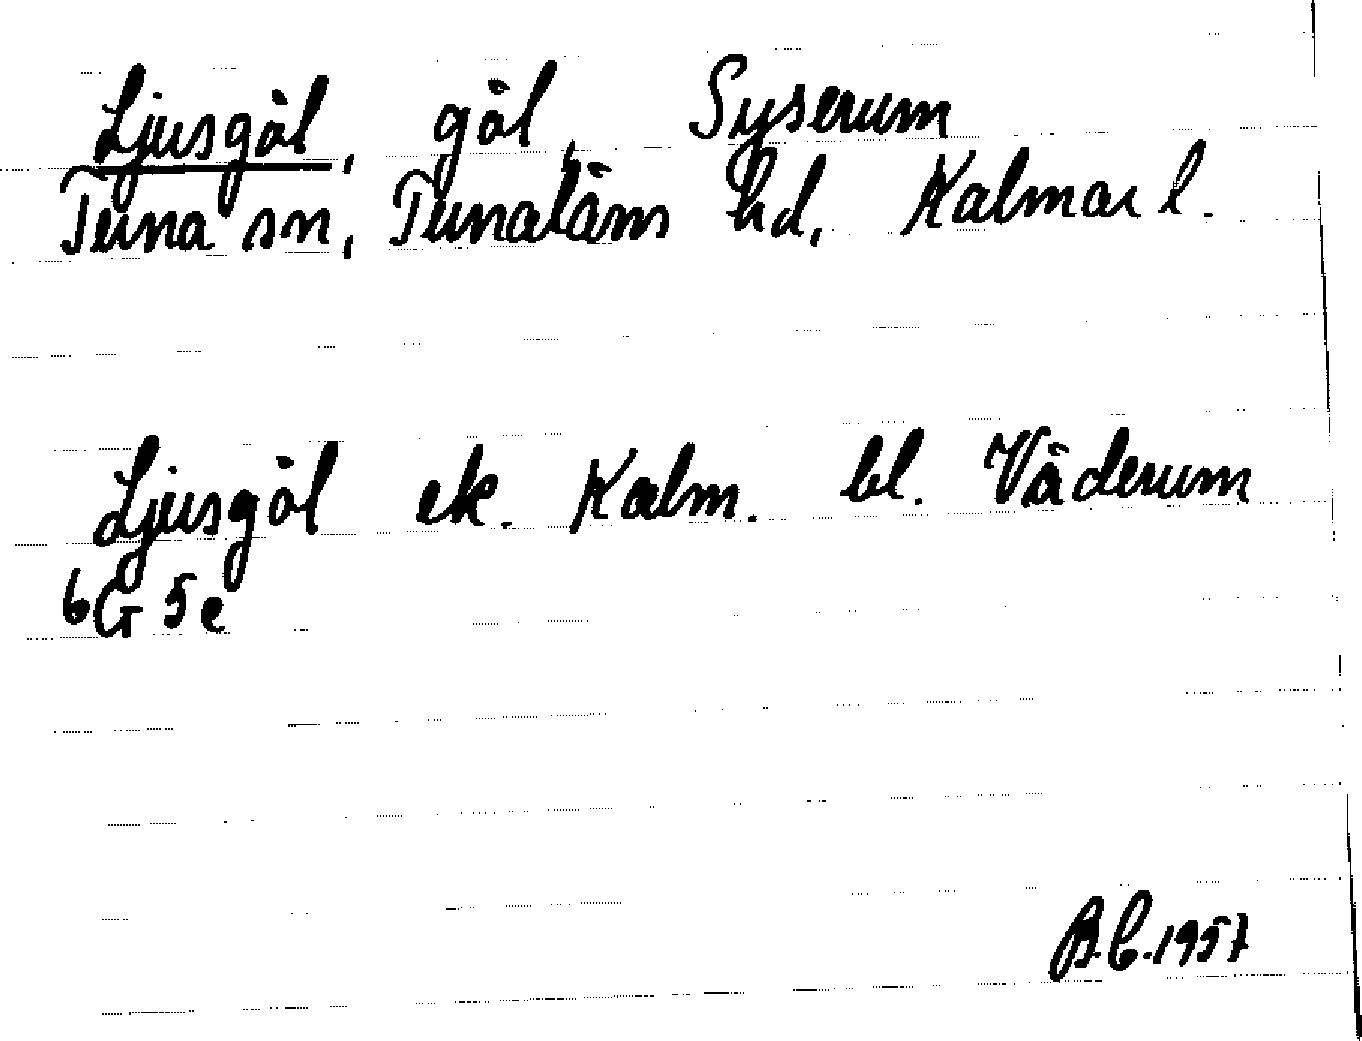 Ljusgöl, göl, Syserum
Tuna sn, Tunaläns hd, Kalmar l.
Ljusgöl ek. Kalm. bl. Väderum
6G 5e
B.E.1957